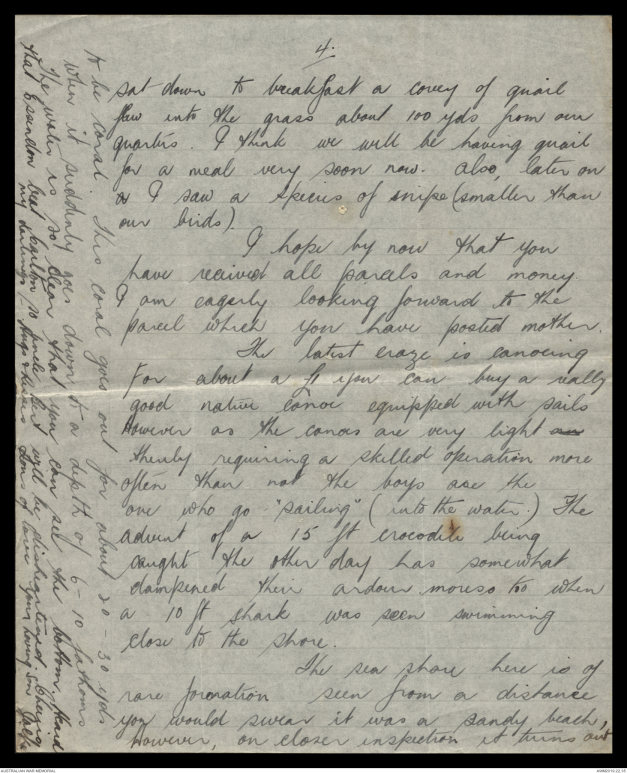 4.
sat down to breakfast a covey of quail
flew into the grass about 100 yds from our
quarters. I think we will be having quail
for a meal very soon now. Also, later on
I saw a species of snipe (smaller than
our birds).
I hope by now that you
have recieved all parcels and money.
I am eagerly looking forward to the
parcel which you have posted mother.
The latest craze is canoeing
For about a £ you can buy a really
good native canoe equipped with sails
However as the canoes are very light
thereby requiring a skilled operation more
often than not the boys are the
one who go "sailing" (into the water.) The
advent of a 15 ft crocodile being
caught the other day has somewhat
dampened their ardour moreso too when
a 10 ft shark was seen swimming
close to the shore.
The sea shore here is of
rare formation seen from a distance
you would swear it was a sandy beach,
However, on closer inspection it turns out
to be coral. This coral goes out for about 20-30 yds
when it suddenly goes down to a depth of 6-10 fathoms
The water is so clear that you can see the bottom. Heard
that Essendon beat Carlton so uncle Bert will be disheartened Cheerio
my darlings, Hugs & Kisses Tons of love Your loving son